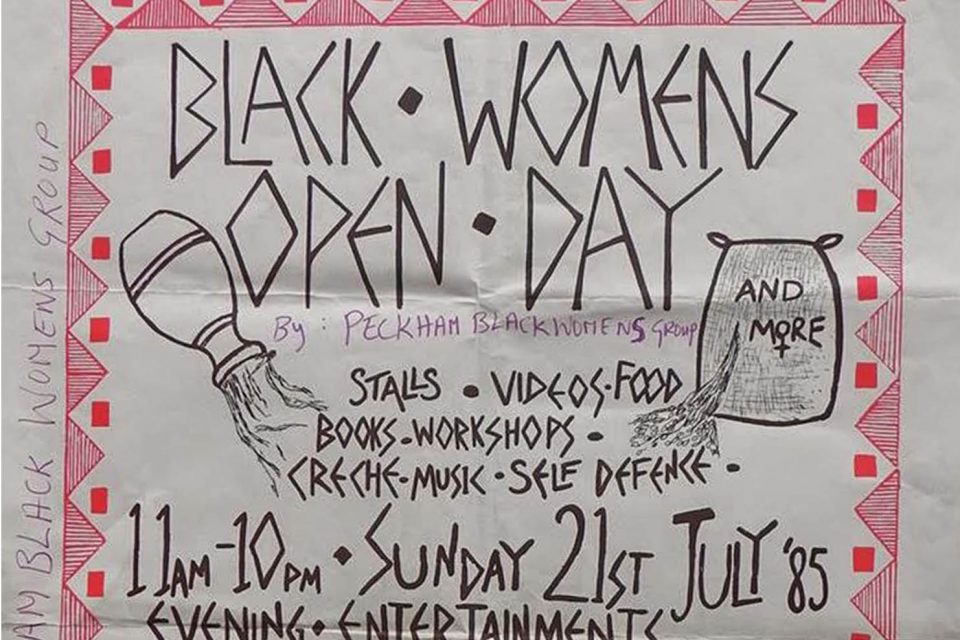 BLACK • WOMENS
OPEN • DAY
By : PECKHAM BLACKWOMENS GROUP
AND
MORE
STALLS • VIDEOS • FOOD
BOOKS • WORKSHOPS •
CRECHE • MUSIC • SELF DEFENCE •
11AM-10PM • SUNDAY 21ST JULY '85
EVENING • ENTERTAINMENTS
AM BLACK WOMENS GROUP